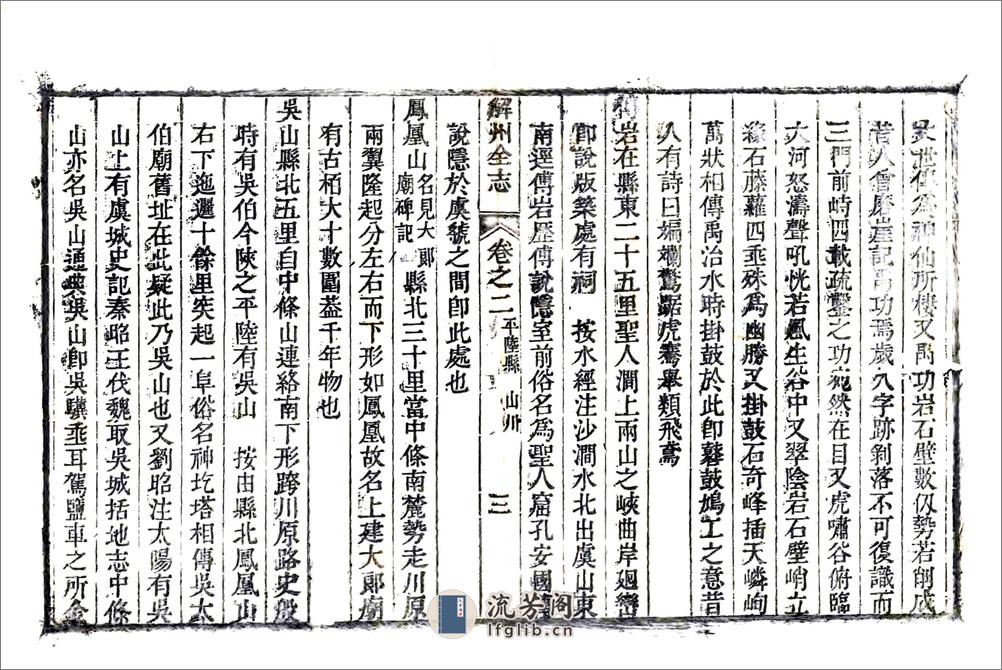 世傳為神仙所棲又禹功岩石壁數仭勢若削成
昔人曾磨崖記禹功焉歲久字跡剝落不可復識而
三門前峙四載疏鑿之功宛然在目又虎嘯谷俯臨
大河怒濤聲吼恍若風生谷中又翠陰岩石壁峭立
綠石藤蘿四垂殊為幽勝又掛鼓石奇峰插天嶙峋
萬狀相傳禹治水時掛鼓於此卽鼛鼓鳩工之意昔
人有詩曰斒斕驚踞虎騫舉類飛鳶
傅岩在縣東二十五里聖人澗上兩山之峽曲岸迴巒
卽說版築處有祠 按水經注沙澗水北出虞山東
南逕傅岩歷傅說隱室前俗名為聖人窟孔安國傳
解州全志 卷之二 平陸縣 山川 三
說隱於虞虢之間卽此處也
鳳凰山名見大郞廟碑記 縣北三十里當中條南麓勢走川原
兩翼隆起分左右而下形如鳳凰故名上建大郞廟
有古栢大十數圍葢千年物也
吳山縣北五里自中條山連絡南下形跨川原路史殷
時有吳伯今陜之平陸有吳山 按由縣北鳳凰山
右下迤邐十餘里突起一阜俗名神圪塔相傳吳太
伯廟舊址在此疑此乃吳山也又劉昭注太陽有吳
山上有虞城史記秦昭王伐魏取吳城括地志中條
山亦名吳山通典吳山卽吳驥垂耳駕鹽車之所
流芳閣
lfglib.cn